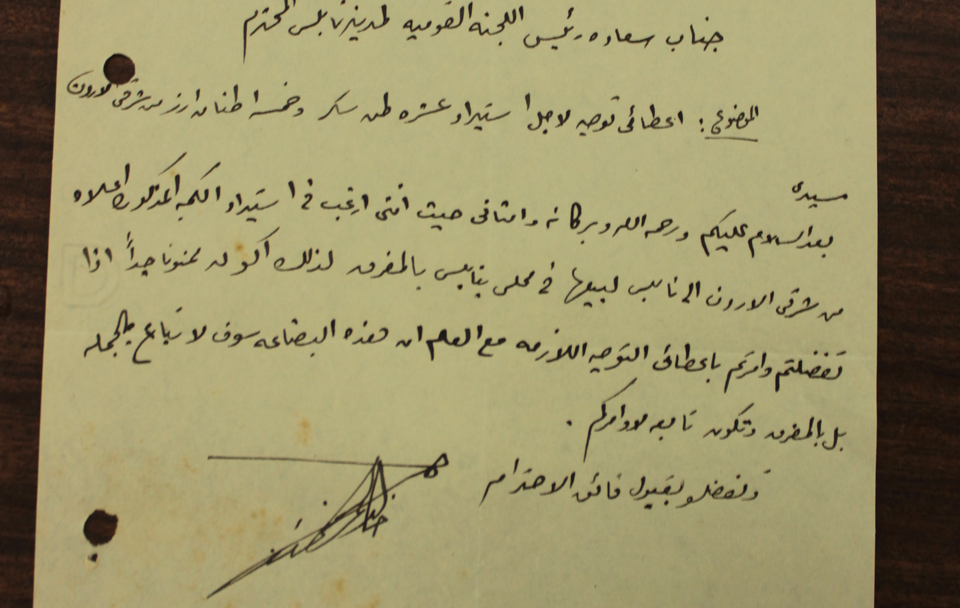 جناب سعادة رئيس اللجنه القوميه لمدينة نابلس المحترم
الموضوع : اعطائي توصيه لاجل استيراد عشره طن سكر وخمسة اطنان ارز من شرقي الاردن
سيدي
بعد السلام عليكم ورحمة الله وبركاته حيث انني ارغب في استيراد الكميه المذكورة اعلاه
من شرقي الاردن الى نابلس لبيعها في محلي بنابلس بالمفرق لذلك اكون ممنونا جداً اذا
تفضلتم وامرتم باعطائي التوصيه اللازمه مع العلم ان هذه البضاعه سوف لا تباع بالجمله
بل بالمفرق وتكون تابعه لاوامركم .
وتفضلو بقبول فائق الاحترام